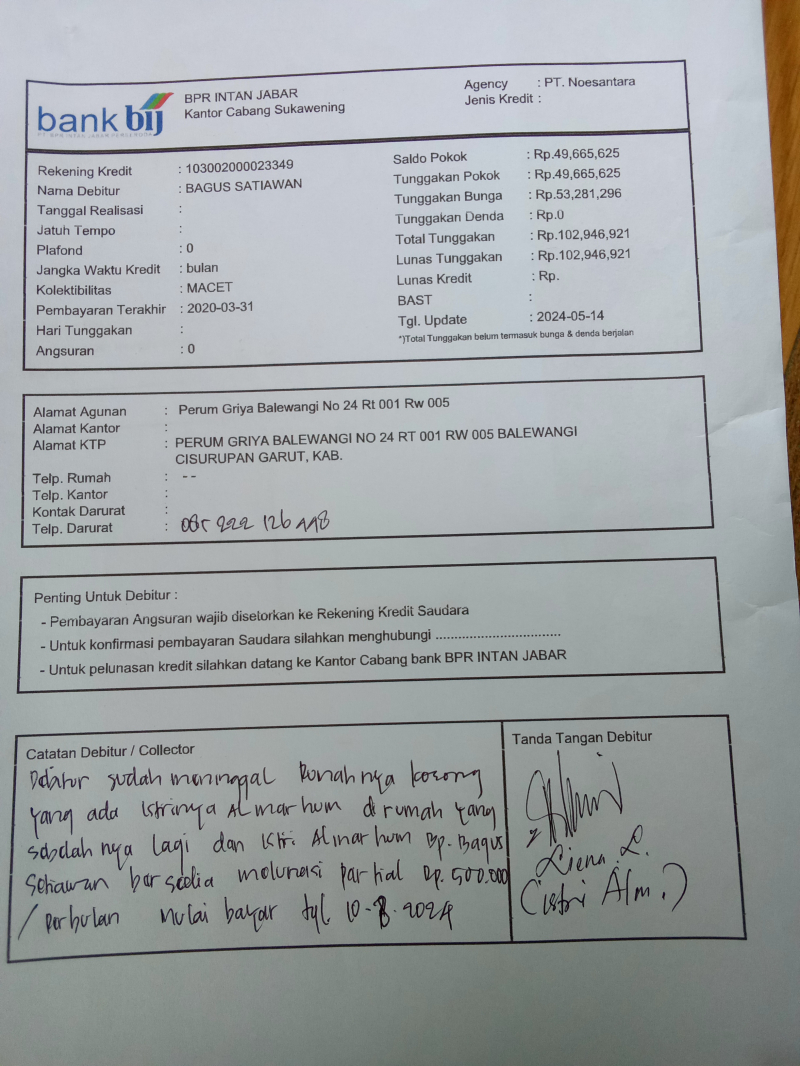 bank bij
BPR INTAN JABAR
Kantor Cabang Sukawening
Agency : PT. Noesantara
Jenis Kredit :
Rekening Kredit : 103002000023349
Nama Debitur : BAGUS SATIAWAN
Tanggal Realisasi :
Jatuh Tempo :
Plafond : 0
Jangka Waktu Kredit : bulan
Kolektibilitas : MACET
Pembayaran Terakhir : 2020-03-31
Hari Tunggakan :
Angsuran : 0
Saldo Pokok : Rp.49,665,625
Tunggakan Pokok : Rp.49,665,625
Tunggakan Bunga : Rp.53,281,296
Tunggakan Denda : Rp.0
Total Tunggakan : Rp.102,946,921
Lunas Tunggakan : Rp.102,946,921
Lunas Kredit : Rp.
BAST :
Tgl. Update : 2024-05-14
*)Total Tunggakan belum termasuk bunga & denda berjalan
Alamat Agunan : Perum Griya Balewangi No 24 Rt 001 Rw 005
Alamat Kantor :
Alamat KTP : PERUM GRIYA BALEWANGI NO 24 RT 001 RW 005 BALEWANGI
CISURUPAN GARUT, KAB.
Telp. Rumah : --
Telp. Kantor :
Kontak Darurat :
Telp. Darurat : 085 222 126 448
Penting Untuk Debitur :
- Pembayaran Angsuran wajib disetorkan ke Rekening Kredit Saudara
- Untuk konfirmasi pembayaran Saudara silahkan menghubungi ................................
- Untuk pelunasan kredit silahkan datang ke Kantor Cabang bank BPR INTAN JABAR
Catatan Debitur / Collector
sudah meninggal Rumahnya kosong
yang ada istrinya Almarhum di rumah yang
sebelah nya lagi dan istri Almarhum Bp. Bagus
Setiawan bersedia melunasi partial Rp. 500.000
/ perbulan mulai bayar tgl. 10-8-2024
Tanda Tangan Debitur
Liena. L.
(istri Alm.)